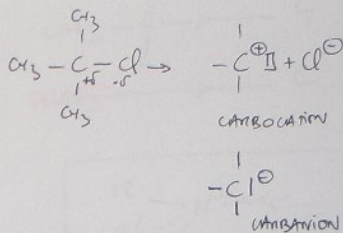 CH3
CH3 – C – Cl → – C ⊕ ▯ + Cl ⊖
+δ -δ
CH3
CARBOCATION
– C | ⊖
CARBANION